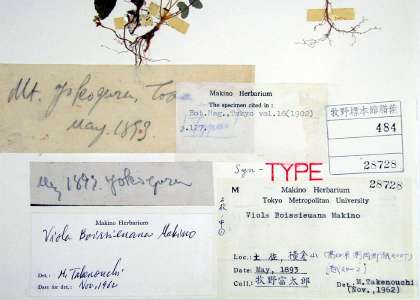 Mt. Yokogura, Tosa
May. 1893
Makino Herbarium
The specimen cited in :
Bot. Mag., Tokyo vol.16(1902)
p.127.
牧野標本館稽査
484
28728
May 1893. Yokogura
Syn-TYPE
28728
M Makino Herbarium
Tokyo Metropolitan University
Viola Boissieuana Makino
Loc.: 土佐, 横倉山
Date: May, 1893
Coll.: 牧野富太郎
Det.: M.Takenouchi
(Nov.,1962)
Makino Herbarium
Viola Boissieuana Makino
Det.: M. Takenouchi
Date for det.: Nov. 1962